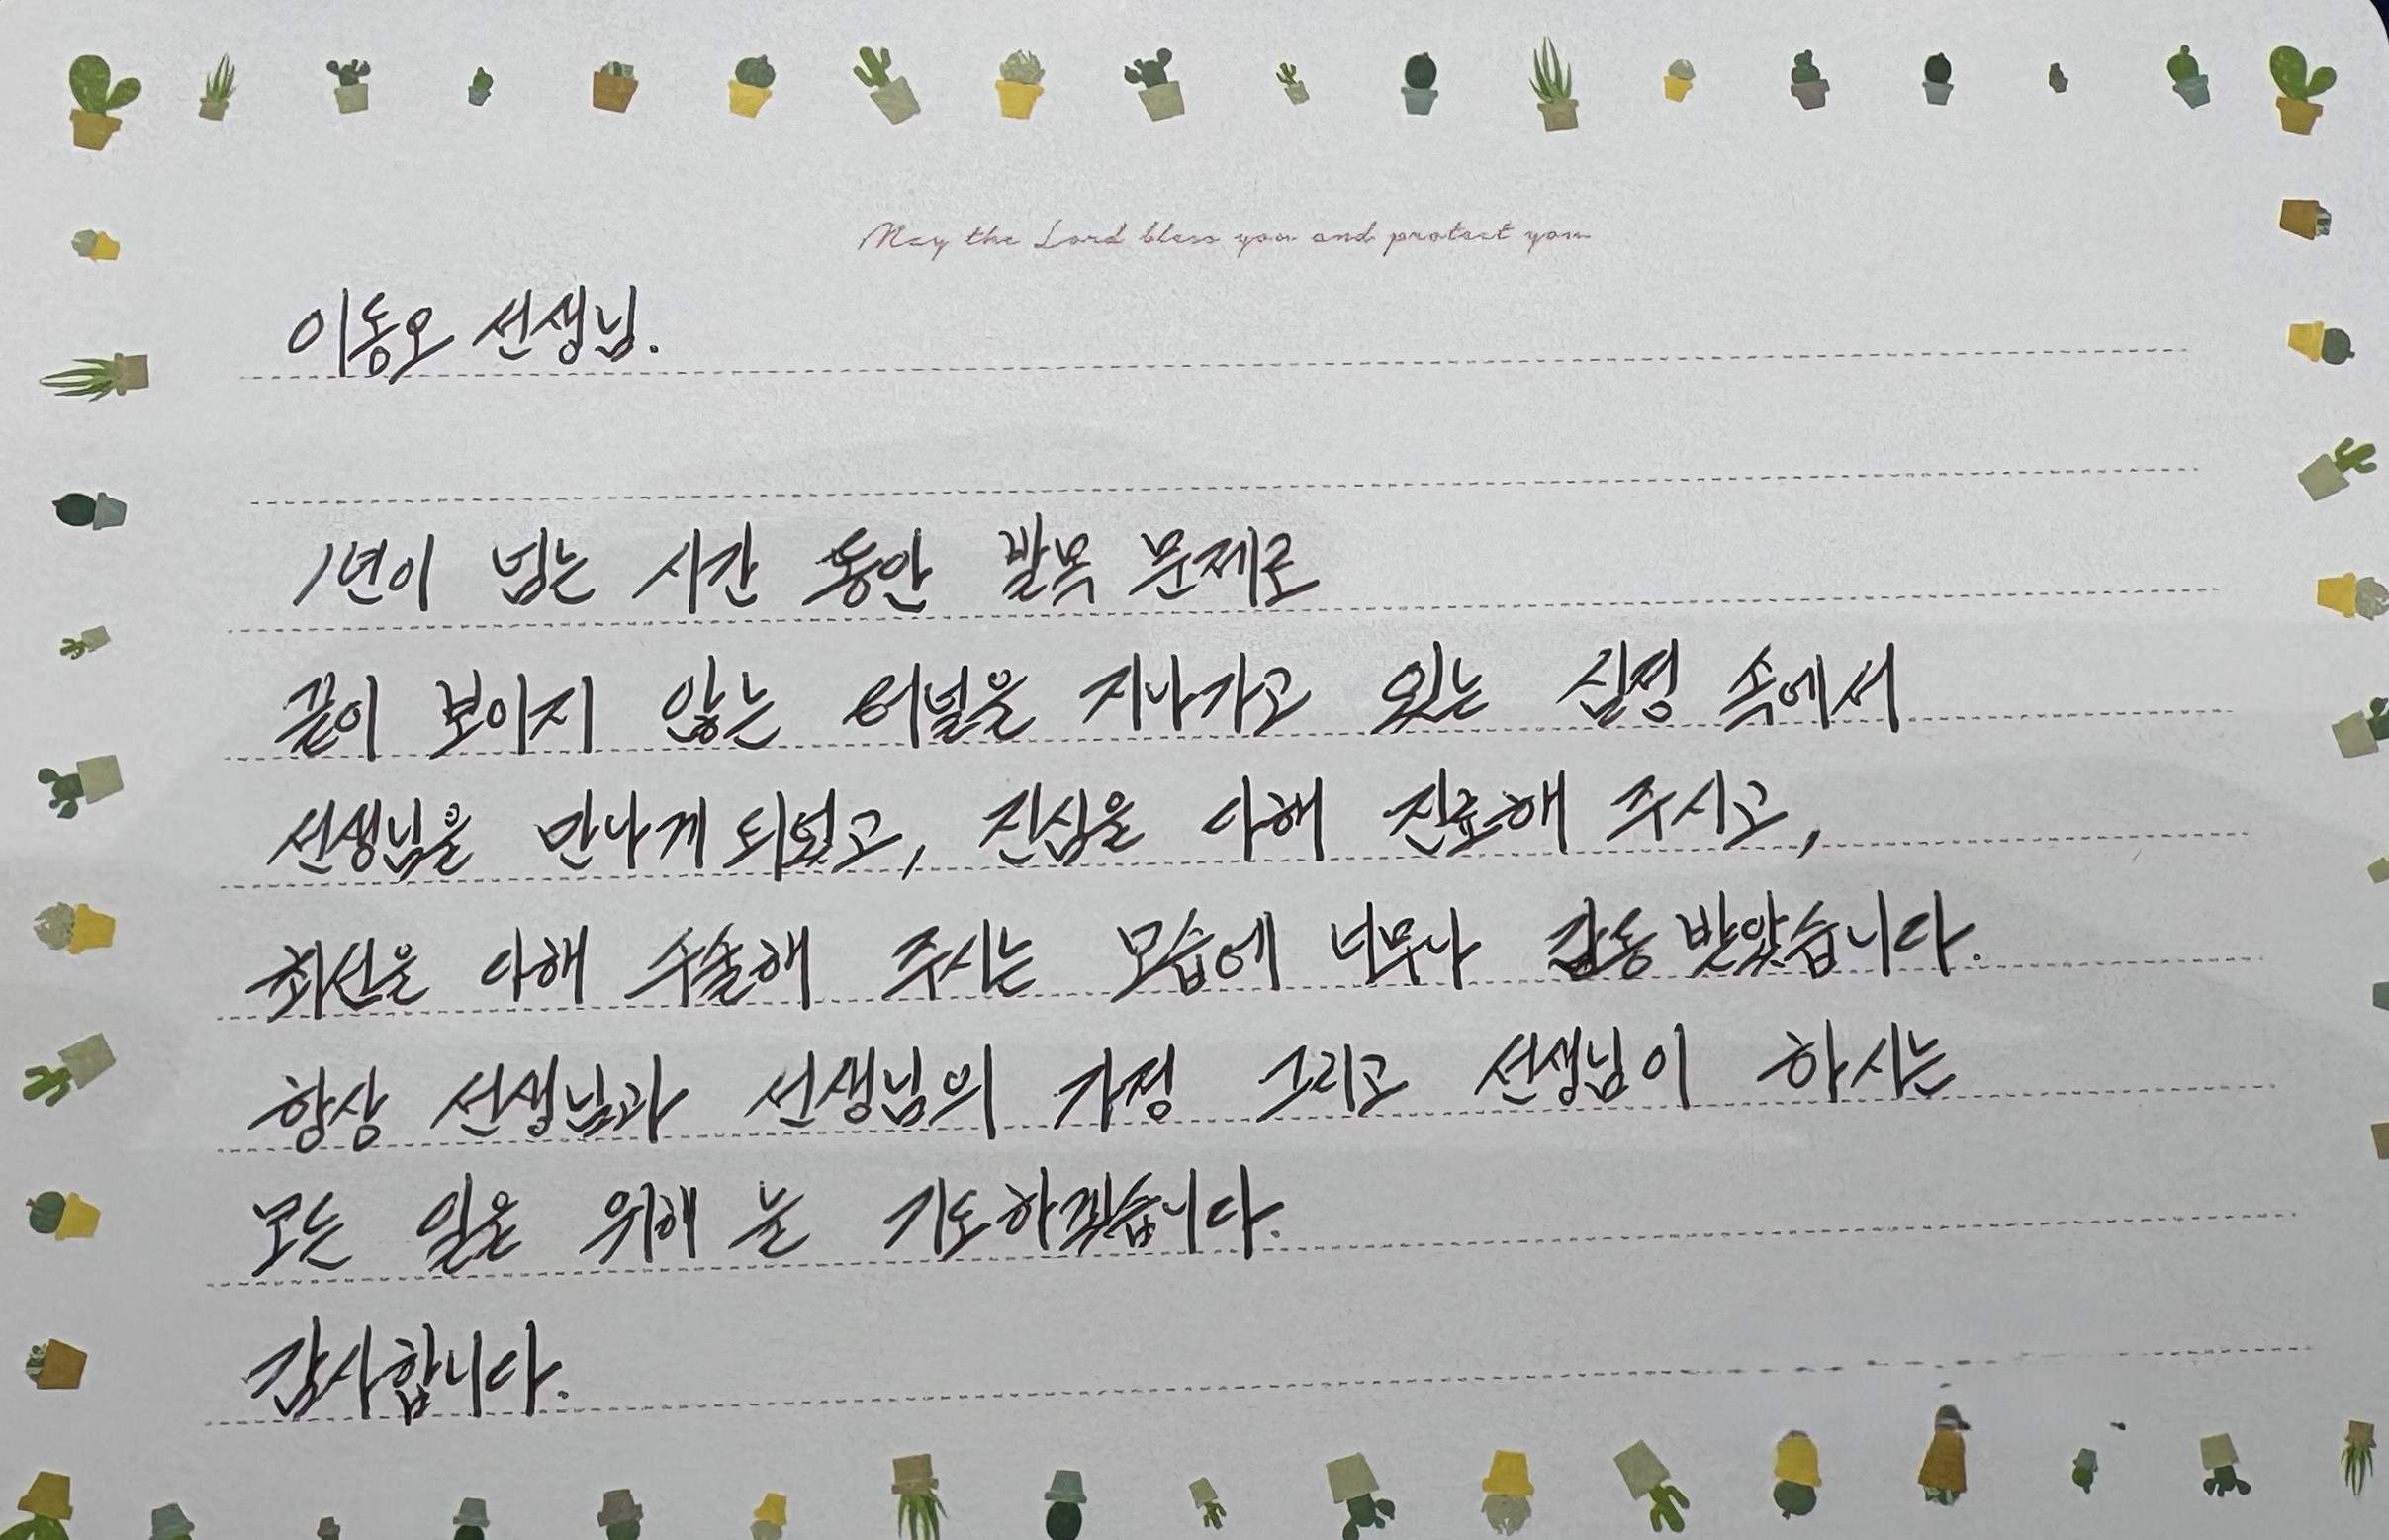 May the Lord bless you and protect you
이동오 선생님.
1년이 넘는 시간 동안 발목 문제로
끝이 보이지 않는 터널을 지나가고 있는 심정 속에서
선생님을 만나게 되었고, 진심을 다해 진료해 주시고,
최선을 다해 수술해 주시는 모습에 너무나 감동 받았습니다.
항상 선생님과 선생님의 가정 그리고 선생님이 하시는
모든 일을 위해 늘 기도하겠습니다.
감사합니다.